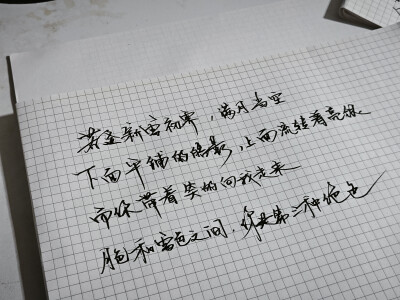 若逢新雪初霁，满月当空
下面平铺的皓影，上面流转着亮银
而你带着笑的向我走来
月色和雪色之间，你是第三种绝色